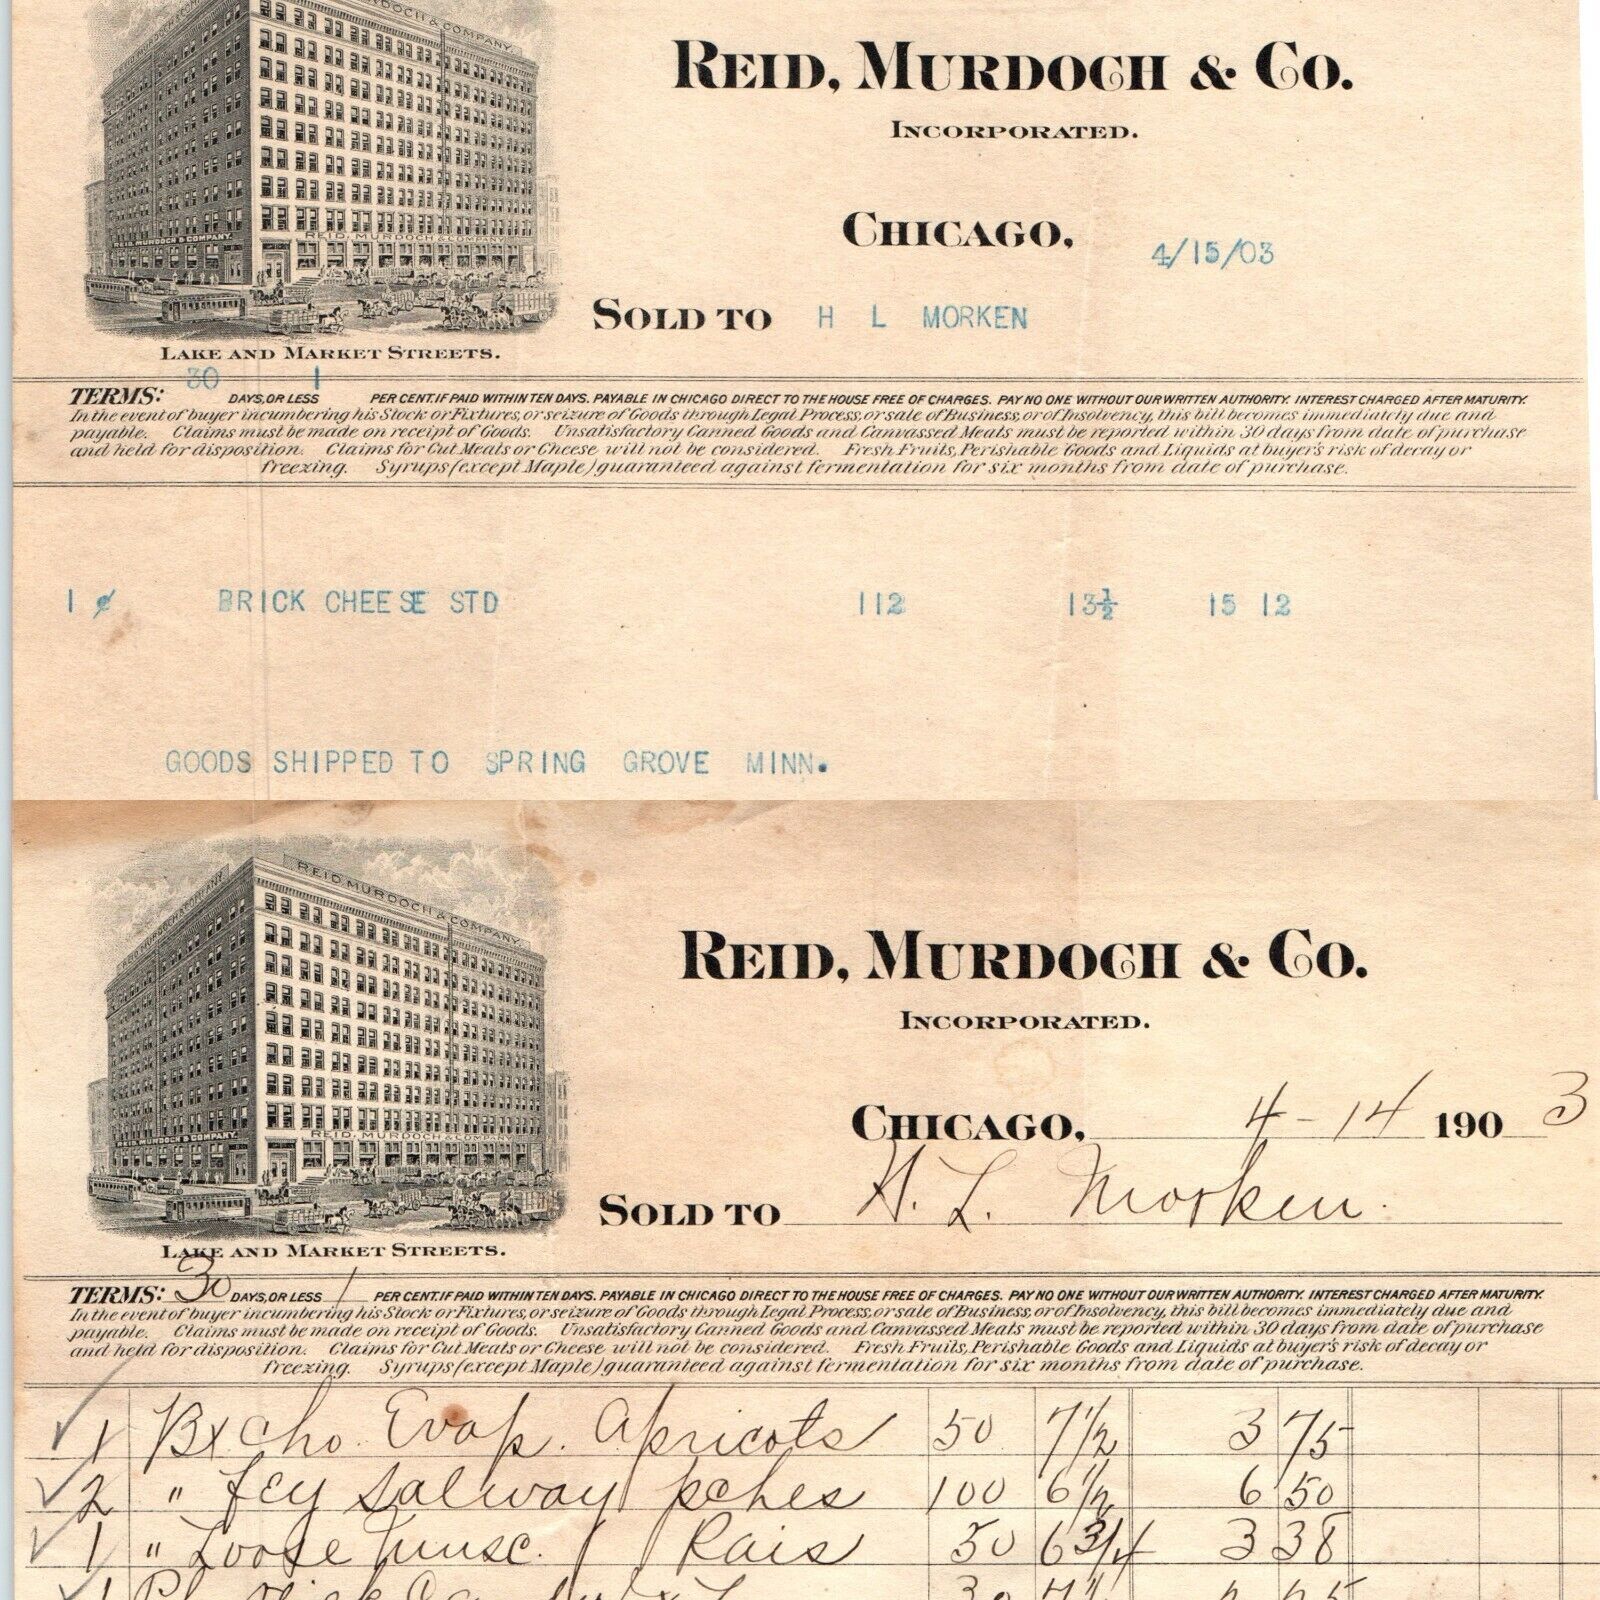 RDOCH & COMPANY.
REID, MURDOCH & Co.
INCORPORATED.
CHICAGO, 4/15/03
REID MURDOCH & COMPANY.
REID, MURDOCH & COMPANY
SOLD TO H L MORKEN
LAKE AND MARKET STREETS.
TERMS: 30 DAYS, OR LESS 1 PER CENT. IF PAID WITHIN TEN DAYS. PAYABLE IN CHICAGO DIRECT TO THE HOUSE FREE OF CHARGES. PAY NO ONE WITHOUT OUR WRITTEN AUTHORITY. INTEREST CHARGED AFTER MATURITY.
In the event of buyer incumbering his Stock or Fixtures, or seizure of Goods through Legal Process, or sale of Business, or of Insolvency, this bill becomes immediately due and
payable. Claims must be made on receipt of Goods. Unsatisfactory Canned Goods and Canvassed Meats must be reported within 30 days from date of purchase
and held for disposition. Claims for Cut Meats or Cheese will not be considered. Fresh Fruits, Perishable Goods and Liquids at buyer's risk of decay or
freezing. Syrups (except Maple) guaranteed against fermentation for six months from date of purchase.
1 BRICK CHEESE STD 112 13½ 15 12
GOODS SHIPPED TO SPRING GROVE MINN.
REID MURDOCH & COMPANY.
REID, MURDOCH & Co.
INCORPORATED.
CHICAGO, 4-14 1903
REID MURDOCH & COMPANY.
REID, MURDOCH & COMPANY
SOLD TO H. L. Morken.
LAKE AND MARKET STREETS.
TERMS: 30 DAYS, OR LESS 1 PER CENT. IF PAID WITHIN TEN DAYS. PAYABLE IN CHICAGO DIRECT TO THE HOUSE FREE OF CHARGES. PAY NO ONE WITHOUT OUR WRITTEN AUTHORITY. INTEREST CHARGED AFTER MATURITY.
In the event of buyer incumbering his Stock or Fixtures, or seizure of Goods through Legal Process, or sale of Business, or of Insolvency, this bill becomes immediately due and
payable. Claims must be made on receipt of Goods. Unsatisfactory Canned Goods and Canvassed Meats must be reported within 30 days from date of purchase
and held for disposition. Claims for Cut Meats or Cheese will not be considered. Fresh Fruits, Perishable Goods and Liquids at buyer's risk of decay or
freezing. Syrups (except Maple) guaranteed against fermentation for six months from date of purchase.
1 Bx Cho. Evap. Apricots 50 7½ 3 75
2 " fcy Salway pches 100 6½ 6 50
1 " Loose Musc. Rais 50 6 3/4 3 38